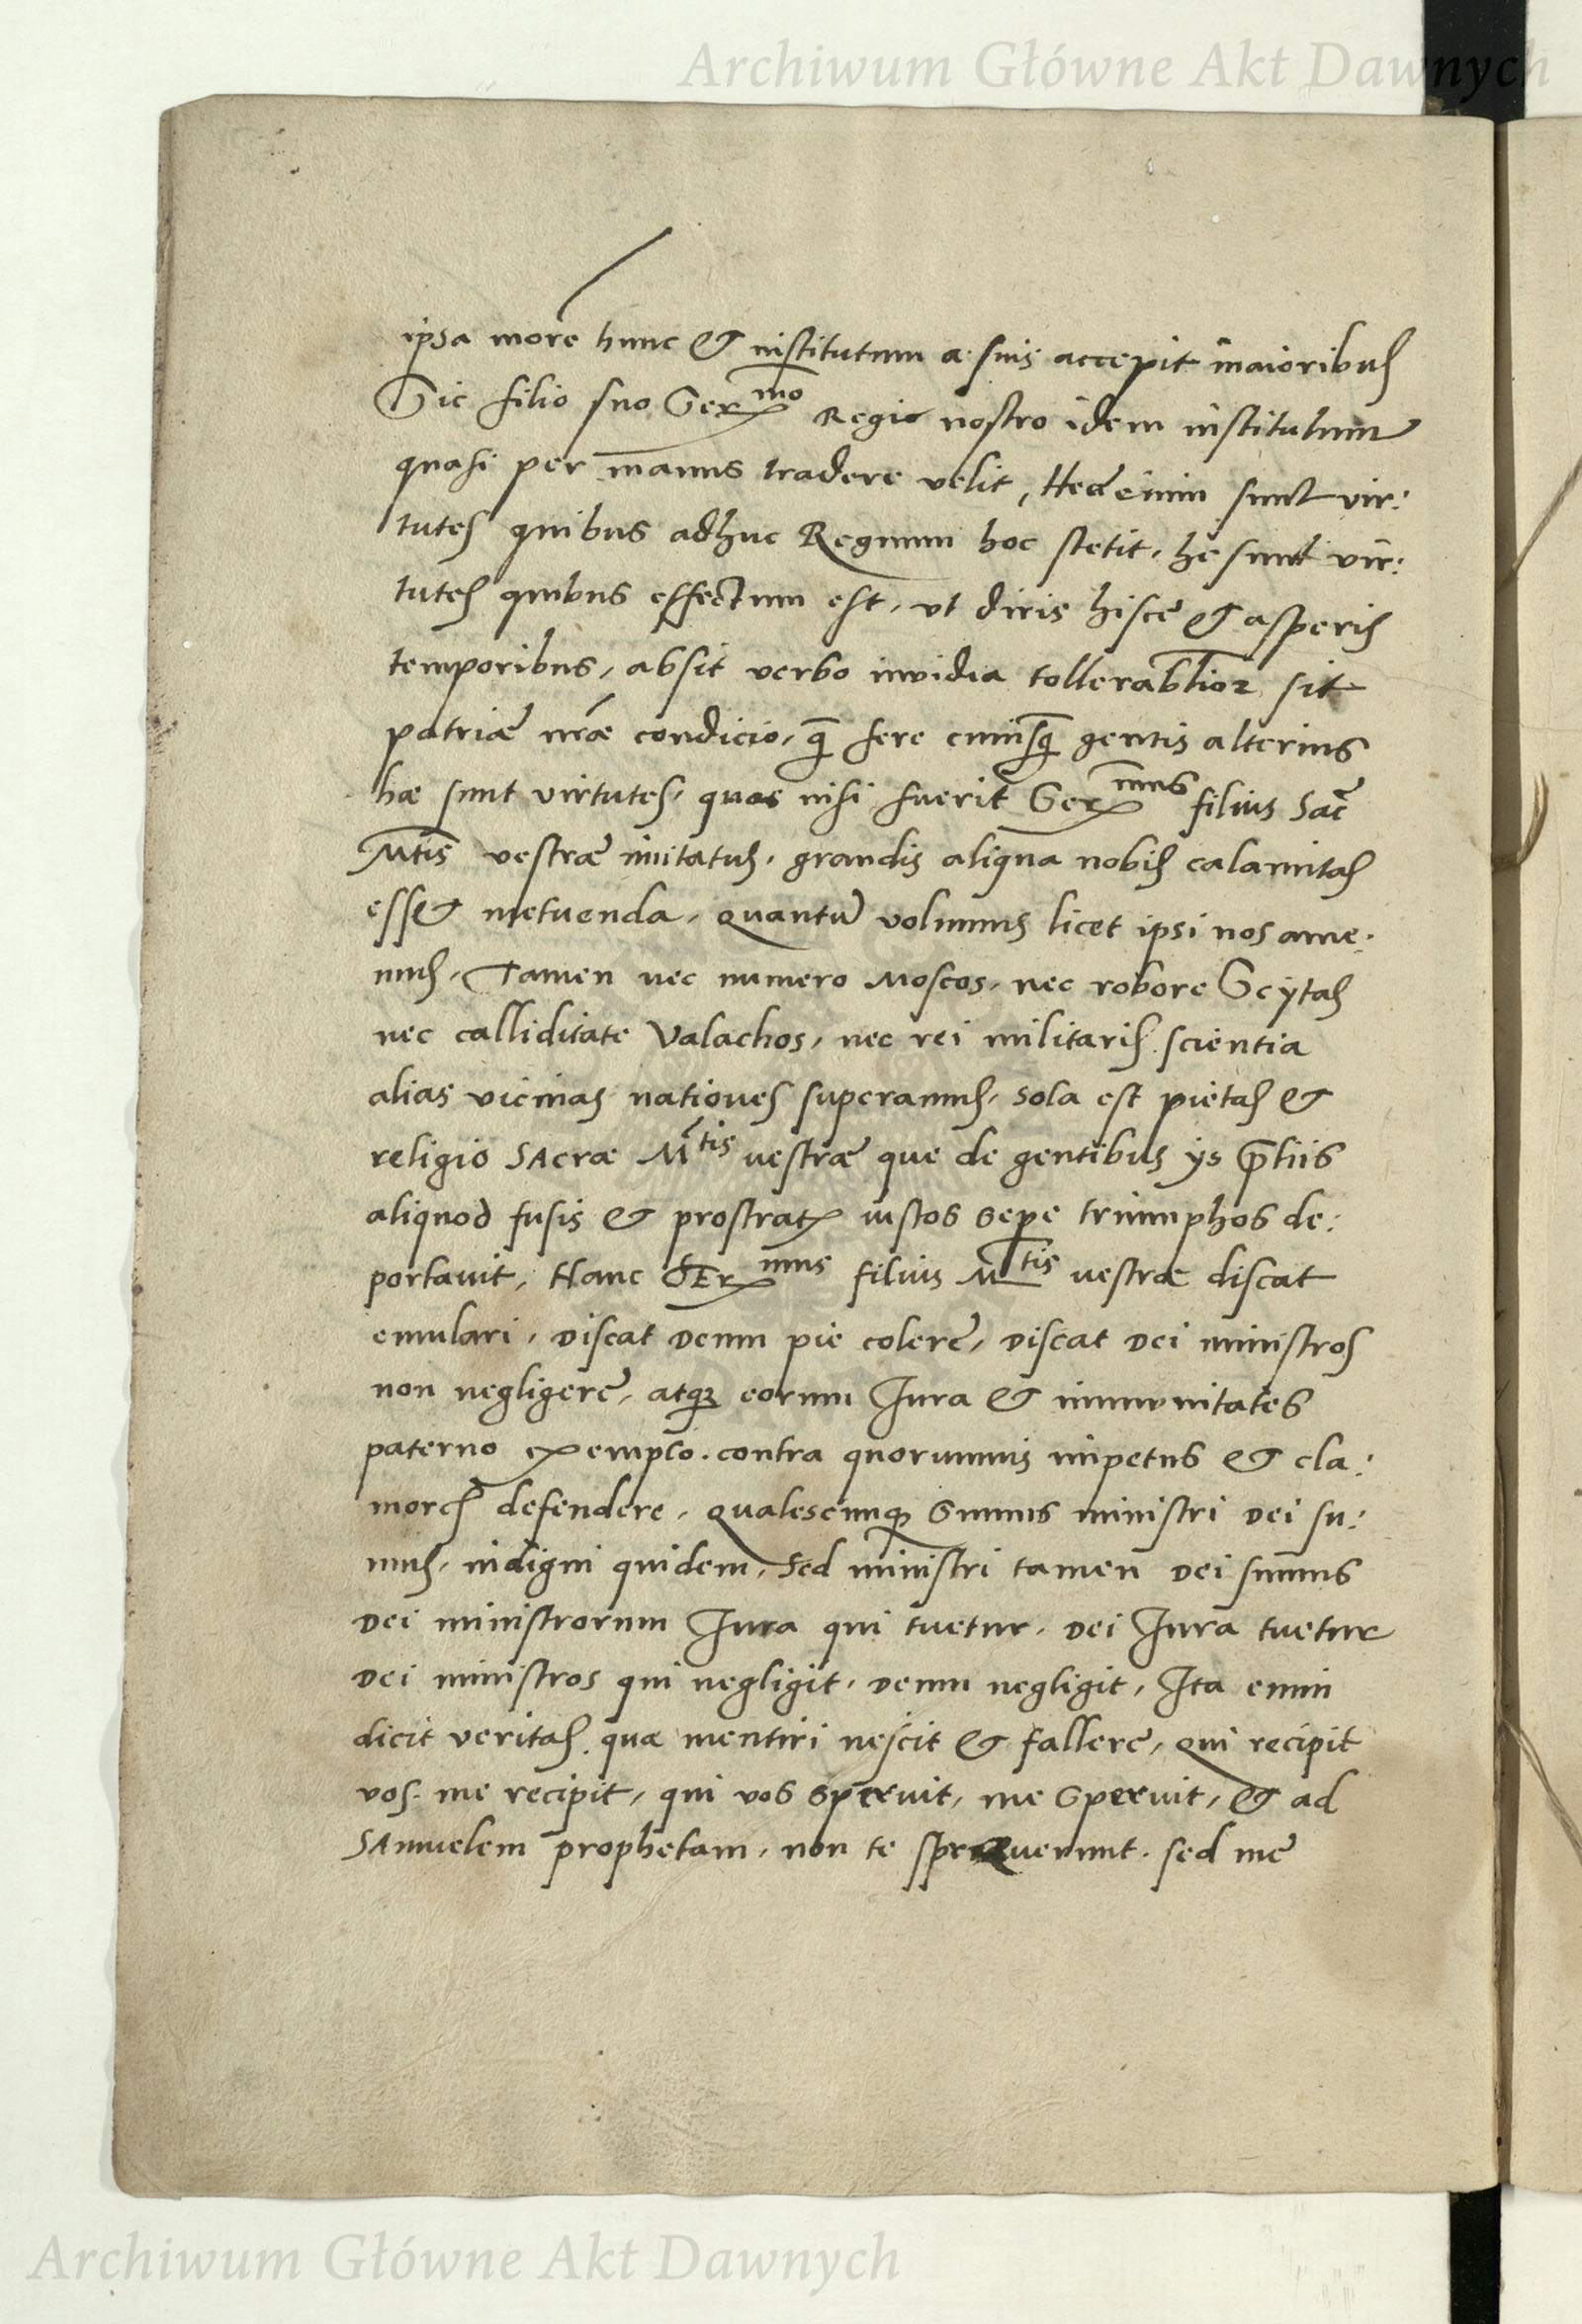 Archiwum Główne Akt Dawnych
ipsa morē hunc & institutum a suis accepit maioribus
Sic filio suo Ser^mo Regie nostro idem institutum
quasi per manus tradere velit, Hec enim sunt vir:
tutes quibus adhuc Regnum hoc stetit, he sunt vir:
tutes quibus effectum est, ut diris hisce & asperis
temporibus, absit verbo invidia tollerabĺior sit
patriæ nr̃æ condicio, q̃ fere cuiusq̃ gentis alterius
hæ sunt virtutes, quas nisi fuerit Ser^mus filius Sac̃
M̃tis vestræ imitatus, grandis aliqua nobis calamitas
esset metuenda, quantũ volumus licet ipsi nos ame:
mus, Tamen nec numero Moscos, nec robore Scytas
nec calliditate Valachos, nec rei militaris scientia
alias vicinas nationes superamus, sola est pietas &
religio SAcræ M^tis vestræ que de gentibus ys p̃liis
aliquod fusis & prostratis iustos sepe triumphos de:
portavit, Hanc SEr^mus filius M^tis vestræ discat
emulari, Discat Deum pie colere, Discat Dei ministros
non negligere, atq3 eorum Jura & immunitates
paterno exemplo, contra quorumvis impetus & cla:
mores defendere, qualescunq3 sumus ministri Dei su:
mus, indigni quidem, sed ministri tamen Dei sumus
Dei ministrorum Jura qui tuetur, Dei Jura tuetur
Dei ministros qui negligit, Deum negligit, Ita enim
dicit veritas, quæ mentiri nescit & fallere, qui recipit
vos, me recipit, qui vos spernit, me spernit, & ad
SAmuelem prophetam, non te spreverunt, sed me
Archiwum Główne Akt Dawnych